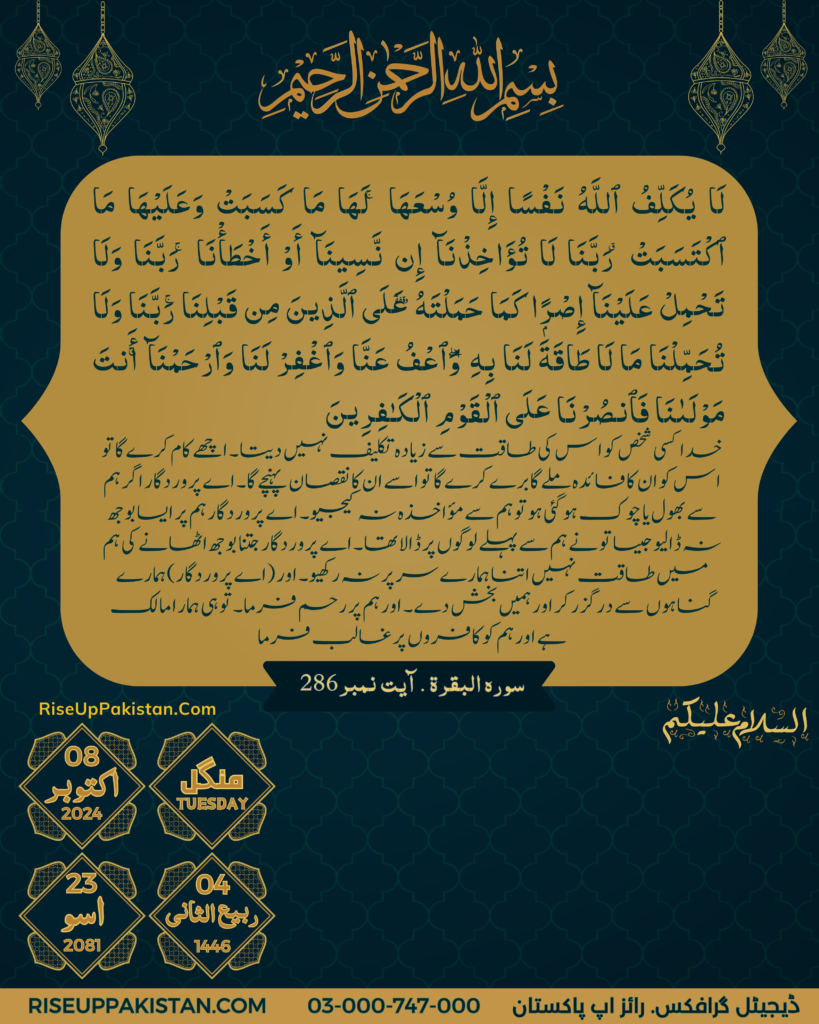 بِسْمِ اللهِ الرَّحْمٰنِ الرَّحِيْمِ
لَا يُكَلِّفُ ٱللَّهُ نَفْسًا إِلَّا وُسْعَهَا ۚ لَهَا مَا كَسَبَتْ وَعَلَيْهَا مَا
ٱكْتَسَبَتْ ۗ رَبَّنَا لَا تُؤَاخِذْنَآ إِن نَّسِينَآ أَوْ أَخْطَأْنَا ۚ رَبَّنَا وَلَا
تَحْمِلْ عَلَيْنَآ إِصْرًا كَمَا حَمَلْتَهُۥ عَلَى ٱلَّذِينَ مِن قَبْلِنَا ۚ رَبَّنَا وَلَا
تُحَمِّلْنَا مَا لَا طَاقَةَ لَنَا بِهِۦ ۖ وَٱعْفُ عَنَّا وَٱغْفِرْ لَنَا وَٱرْحَمْنَآ ۚ أَنتَ
مَوْلَىٰنَا فَٱنصُرْنَا عَلَى ٱلْقَوْمِ ٱلْكَـٰفِرِينَ
خدا کسی شخص کو اس کی طاقت سے زیادہ تکلیف نہیں دیتا۔ اچھے کام کرے گا تو
اس کو ان کا فائدہ ملے گا برے کرے گا تو اسے ان کا نقصان پہنچے گا۔ اے پروردگار اگر ہم
سے بھول یا چوک ہوگئی ہو تو ہم سے مؤاخذہ نہ کیجیو۔ اے پروردگار ہم پر ایسا بوجھ
نہ ڈالیو جیسا تو نے ہم سے پہلے لوگوں پر ڈالا تھا۔ اے پروردگار جتنا بوجھ اٹھانے کی ہم
میں طاقت نہیں اتنا ہمارے سر پر نہ رکھیو۔ اور (اے پروردگار) ہمارے
گناہوں سے درگزر کر اور ہمیں بخش دے۔ اور ہم پر رحم فرما۔ تو ہی ہمارا مالک
ہے اور ہم کو کافروں پر غالب فرما
سورہ البقرۃ . آیت نمبر 286
RiseUpPakistan.Com
السلام علیکم
08
اکتوبر
2024
منگل
TUESDAY
23
اسو
2081
04
ربیع الثانی
1446
RISEUPPAKISTAN.COM 03-000-747-000 ڈیجیٹل گرافکس. رائز اپ پاکستان